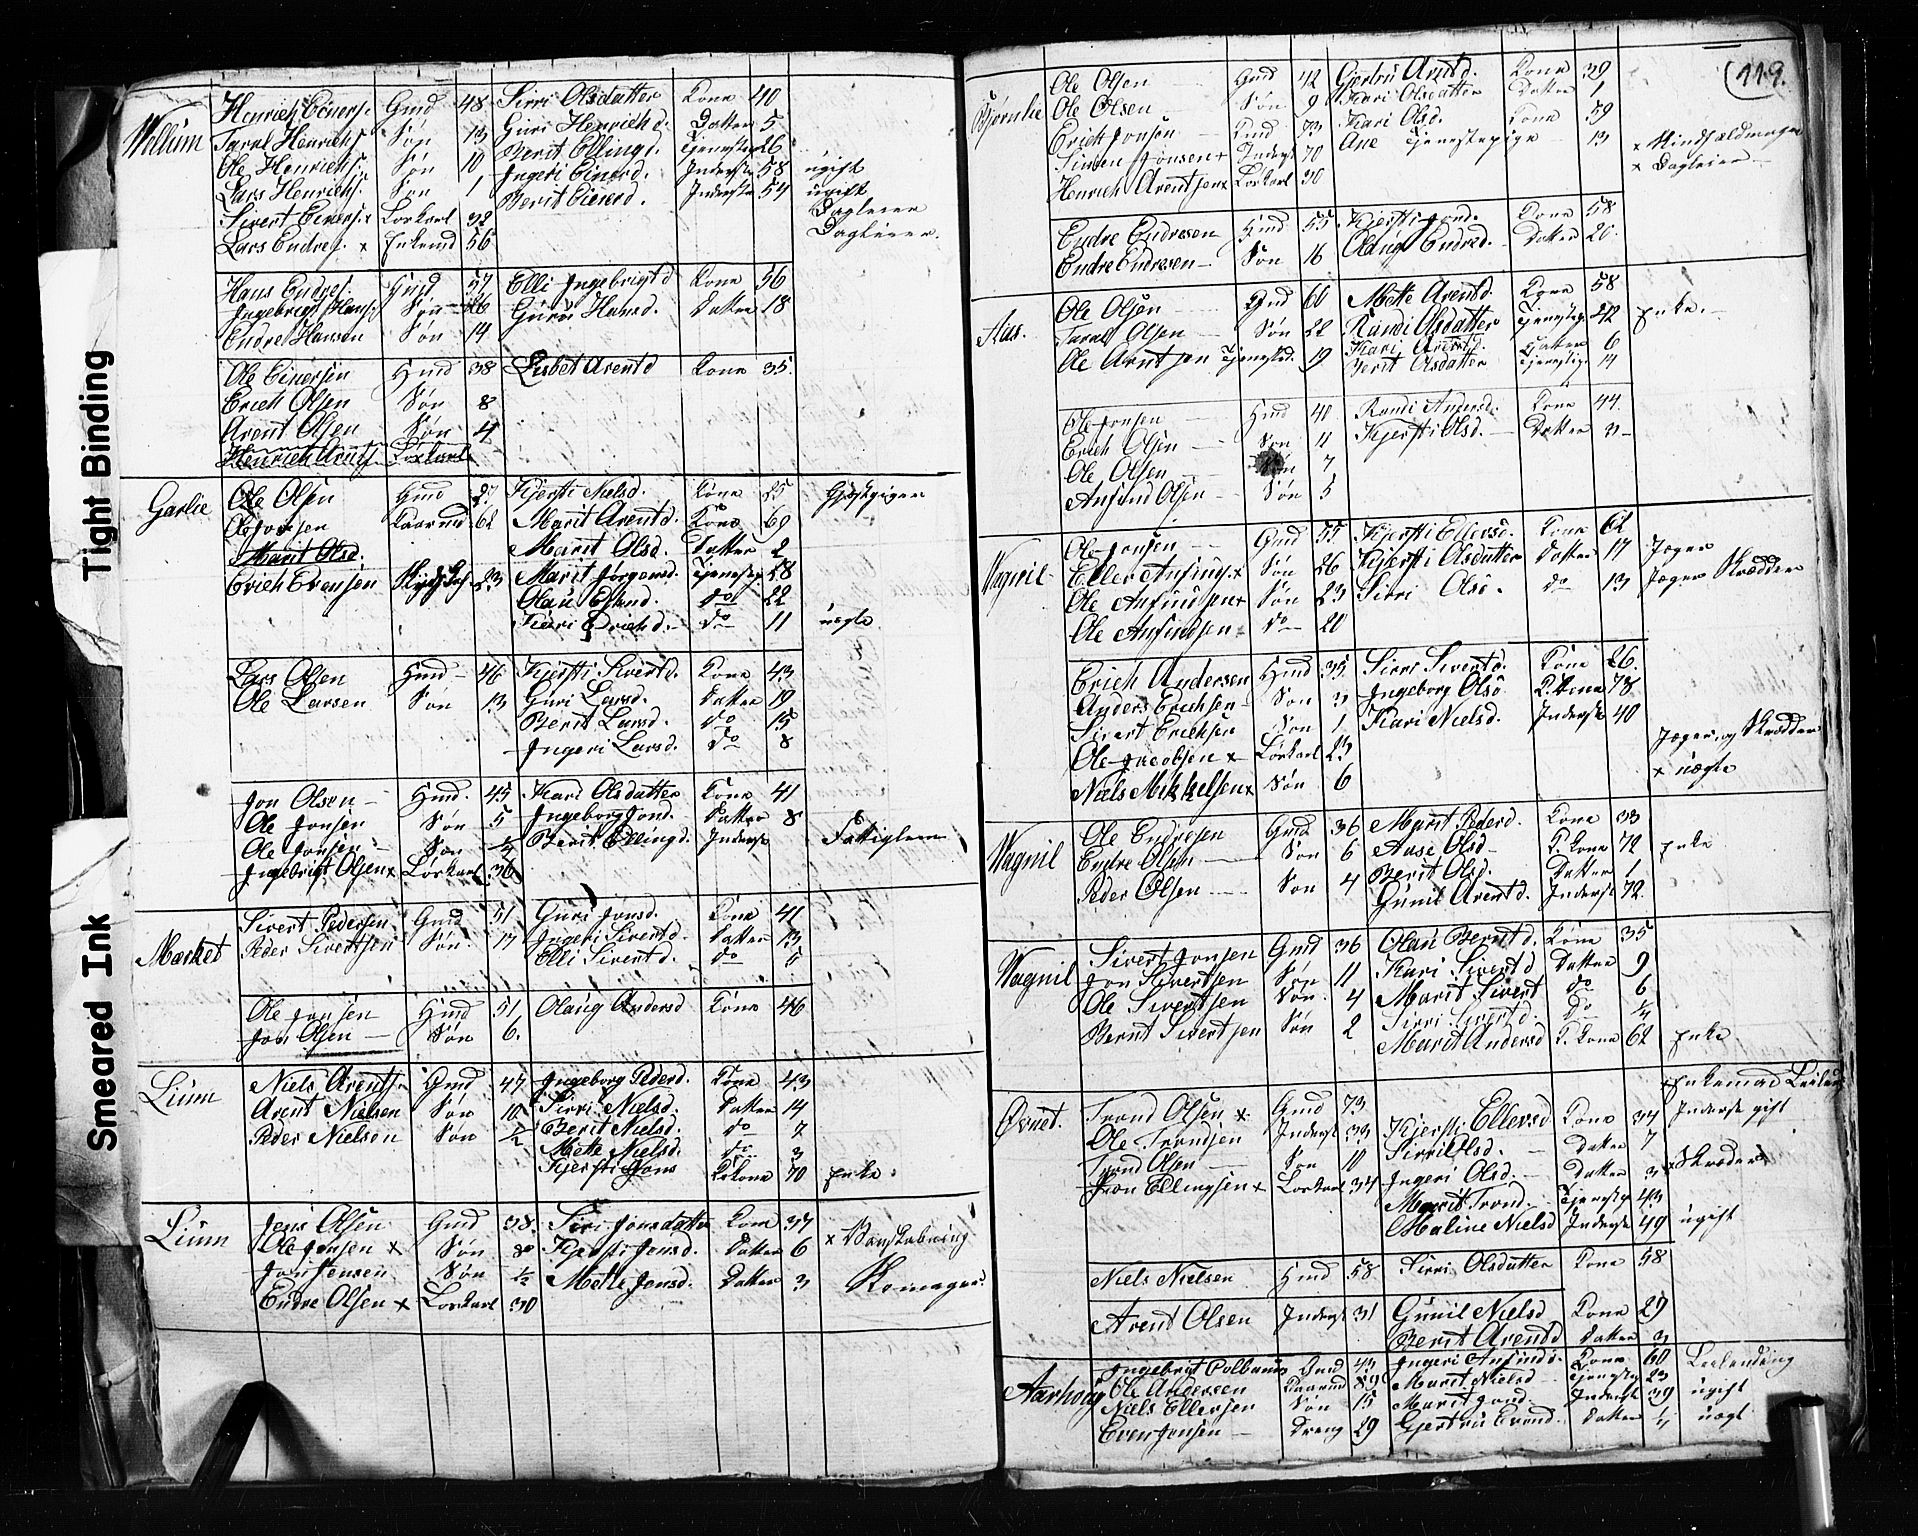 Tight Binding
Smeared Ink
Wollum Henrich Einers. Gmd 48 Sirri Olsdatter Kone 40
Taral Henrichs. Søn 13 Guri Henrichd. Datter 5
Ole Henrichs. Søn 10 Berit Ellingd. Tjenestep 26
Lars Henrichs. Søn 1 Ingeri Einersd. Inderste 58 ugift
Sivert Einers. x Loskarl 32 Berit Einersd. Inderste 54 ugift
Dagleier
Lars Endres. x Enkemd 56 Dagleier.
Hans Endres. Hmd 57 Elli Ingebrigtd Kone 56
Ingebrigt Hans. Søn 26 Guru Hansd. Datter 18
Endre Hansen Søn 14
Ole Einersen Hmd 38 Lisbet Arentd Kone 35.
Erich Olsen Søn 8
Arent Olsen Søn 4
Henrich Arnts. Loskarl
Garlie Ole Olsen Gmd 27 Kjersti Nielsd. Kone 25 Gjestgiver
Ole Jonsen Kaarmd 62 Marit Arentd. Kone 69
Marit Olsd. Marit Olsd. Datter 2
Erich Evensen 23 Marit Jørgensd. Tjenestep 28
Olau Estend. do 22
Kari Erichd. do 11 uægte
Lars Olsen Hmd 46 Kjersti Sivertd. Kone 43
Ole Larsen Søn 13 Guri Larsd. Datter 19
Berit Larsd. do 15
Ingeri Larsd. do 8
Jon Olsen Hmd. 45 Kari Olsdatter Kone 41
Ole Jonsen Søn 5 Ingeborg Jond. Datter 8
Ole Jonsen Søn 1/4 Berit Ellingd. Inderste Fattiglem
Ingebrigt Olsen x Loskarl 36
Market Sivert Pedersen Gmd 51 Guri Jonsd. Kone 41
Peder Sivertsen Søn 17 Ingeri Sivertd. Datter 13
Elli Sivertd. do 5
Ole Jonsen Hmd 51 Olaug Andersd Kone 46
Jon Olsen Søn 6.
Lium Niels Arents. Gmd 47 Ingeborg Pederd. Kone 43
Arent Nielsen Søn 10 Sirri Nielsd. Datter 14
Peder Nielsen Søn 1/2 Berit Nielsd. do 7
Mette Nielsd. do 3
Kjersti Jons K.kone 70 Enke
Lium Jens Olsen Gmd 38. Siri Jonsdatter Kone 37
Ole Jensen x Søn 8 Kjersti Jensd. Datter 6 x Vanskabning
Jon Jensen Søn 1/2 Mette Jensd. Datter 3
Endre Olsen x Loskarl 30 Skomager
119.
Bjørnlie Ole Olsen Gmd 42 Gertru Arntd. Kone 39
Ole Olsen Søn 9 Kari Olsdatter Datter 1
Erich Jonsen Hmd 73 Kari Olsd. Kone 59
Simen Jonsen x Inderst 70 Ane Tjenestepige 13
Henrich Arentsen x Loskarl 30 x Dagleier
Endre Endresen Hmd 55 Kjersti Jond. Kone 58
Endre Endresen Søn 16 Olaug Endred. Datter 20.
Aas. Ole Olsen Gmd 60 Mette Arentd. Kone 58
Taral Olsen Søn 22 Randi Olsdatter Tjenestep. 42 Enke.
Ole Arntsen Tjenested. 19 Kari Arentd. Datter 6
Berit Olsdatter Tjenestep. 14
Ole Jonsen Hmd 40 Randi Anders. Kone 44
Erich Olsen Søn 4 Kjersti Olsd. Datter 3
Ole Olsen Søn 7
Anfind Olsen Søn 5
Wognil Ole Jonsen Gmd 55 Kjersti Ellersd. Kone 62
Eller Anfinds. x Søn 26 Kjersti Olsdatter Datter 17 Jæger
Ole Anfindsen x Søn 23 Sirri Olsd. do 13 Jæger Skrædder
Ole Anfindsen x do 20
Erich Andersen Hmd 35 Sirri Sivertd. Kone 26.
Anders Erichsen Søn 3 Ingeborg Olsd K.kone 78
Sivert Erichsen Søn 1 Kari Nielsd. Inderst 40
Ole Jacobsen x Loskarl 23 Jæger og Skrædder
Niels Mikkelsen x Søn 6 x uægte
Wognil Ole Endresen Gmd 36 Marit Pederd. Kone 33
Endre Olsen Søn 6 Aase Olsd K.kone 72 Enke
Peder Olsen Søn 4 Berit Olsd. Datter 1
Gunil Arentd. Inderst 72.
Wognil Sivert Jonsen Gmd 36 Olau Berntd. Kone 35
Jon Sivertsen Søn 11 Kari Sivertd Datter 9
Ole Sivertsen Søn. 4 Marit Sivert do 6
Bernt Sivertsen Søn 2 Sirri Sivertd. do 1/4
Marit Andersd K.kone 62 Enke
Øvnet. Trond Olsen x Gmd 73 x Enkemand
Ole Trondsen Inderst 33 Kjersti Ellersd Kone 34 Inderst gift
Trond Olsen Søn 10 Sirri Olsd. Datter 7
Jon Ellingsen x Loskarl 34 Ingeri Olsd. Datter 3 x Skræder
Marit Trond. Tjenestep 43
Maline Nielsd Inderst 49 ugift
Niels Nielsen Hmd 58 Sirri Olsdatter Kone 58
Arent Olsen Inderst 31 Gunil Nielsd Kone 29
Berit Arentd Datter 3
Aarhoug Ingebrigt Gmd 43 Ingeri Anfinds. Kone 60 Leilending
Ole Andersen Kaarmd 89 Marit Nielsd Tjenestep 23
Niels Ellersen Søn 15 Marit Jond. Inderst 39 ugift
Even Jonsen Dreng 29 Gjertru Evend. Datter 1/4 uægt